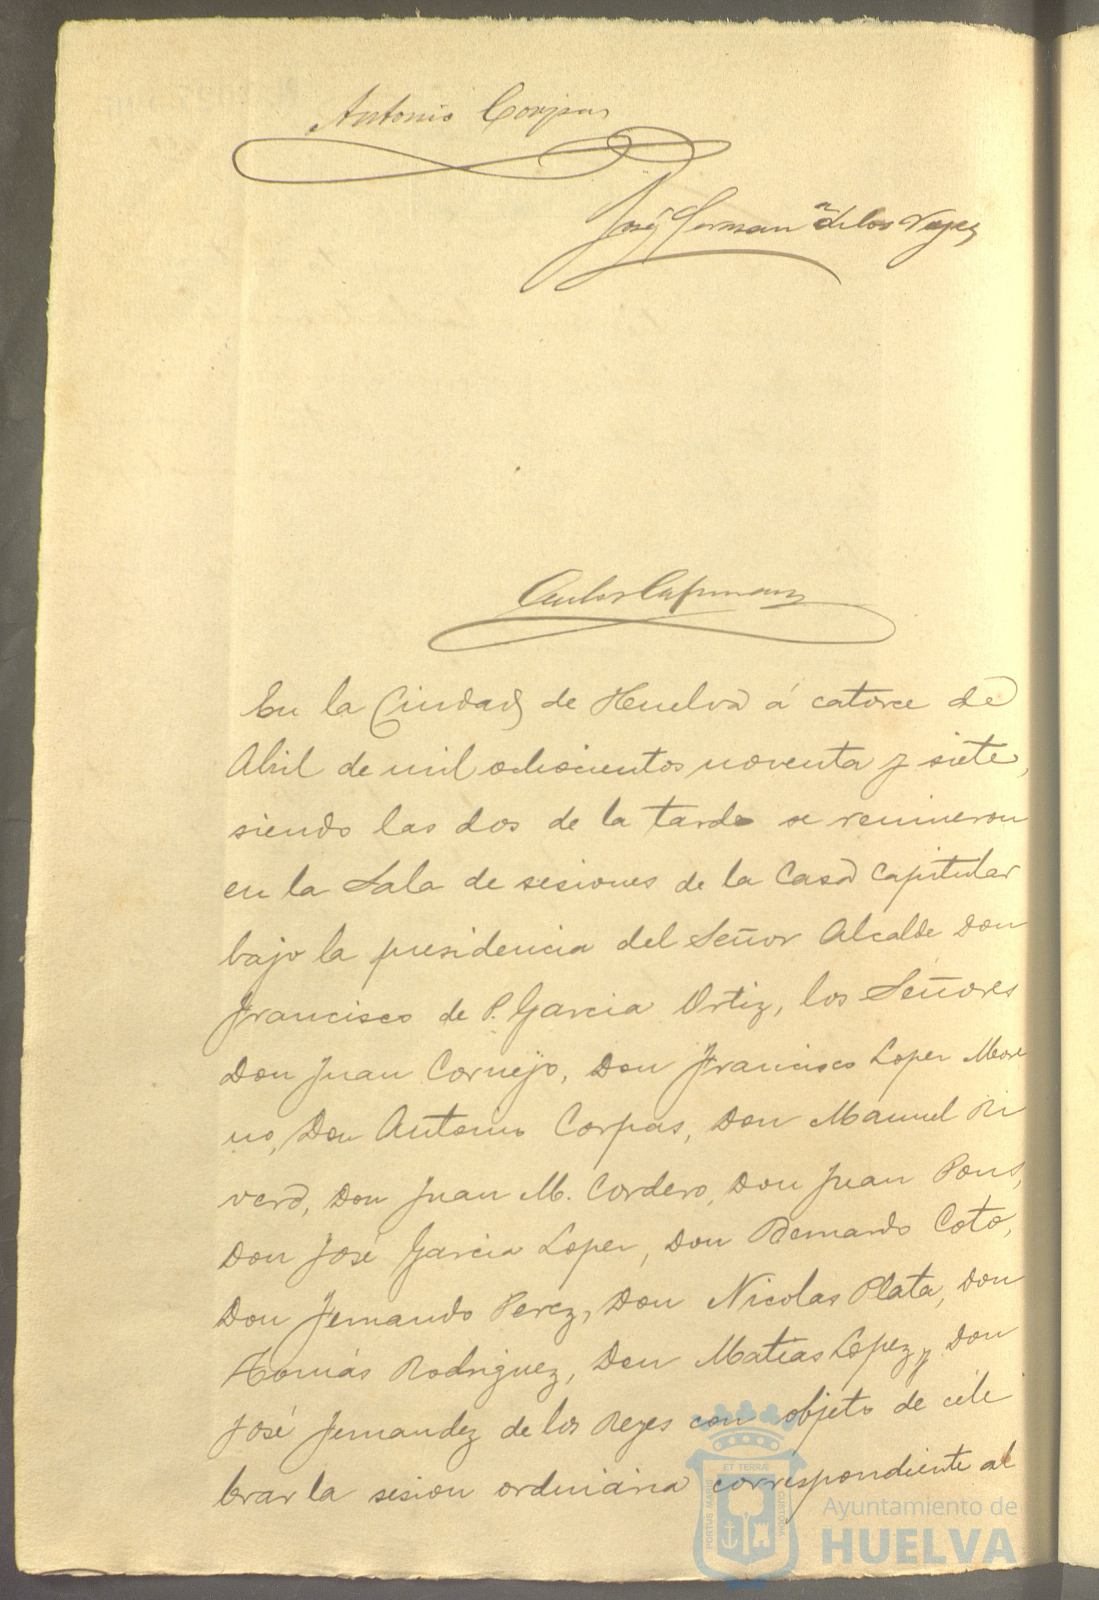 Antonio Corpas
José Fernan de los Reyes
En la Ciudad de Huelva á catorce de
Abril de mil ochocientos noventa y siete,
siendo las dos de la tarde se reunieron
en la Sala de sesiones de la Casa Capitular
bajo la presidencia del Señor Alcalde Don
Francisco de P. Garcia Ortiz, los Señores
Don Juan Cornejo, Don Francisco Lopez More
no, Don Antonio Corpas, Don Manuel Ri
vero, Don Juan M. Cordero, Don Juan Pons,
Don José Garcia Lopez, Don Bernardo Coto,
Don Fernando Perez, Don Nicolas Plata, Don
Tomás Rodriguez, Don Matías Lopez y Don
José Fernandez de los Reyes con objeto de cele
brar la sesion ordinaria correspondiente al
PORTUS MARIS ET TERRÆ CUSTODIA
Ayuntamiento de
HUELVA